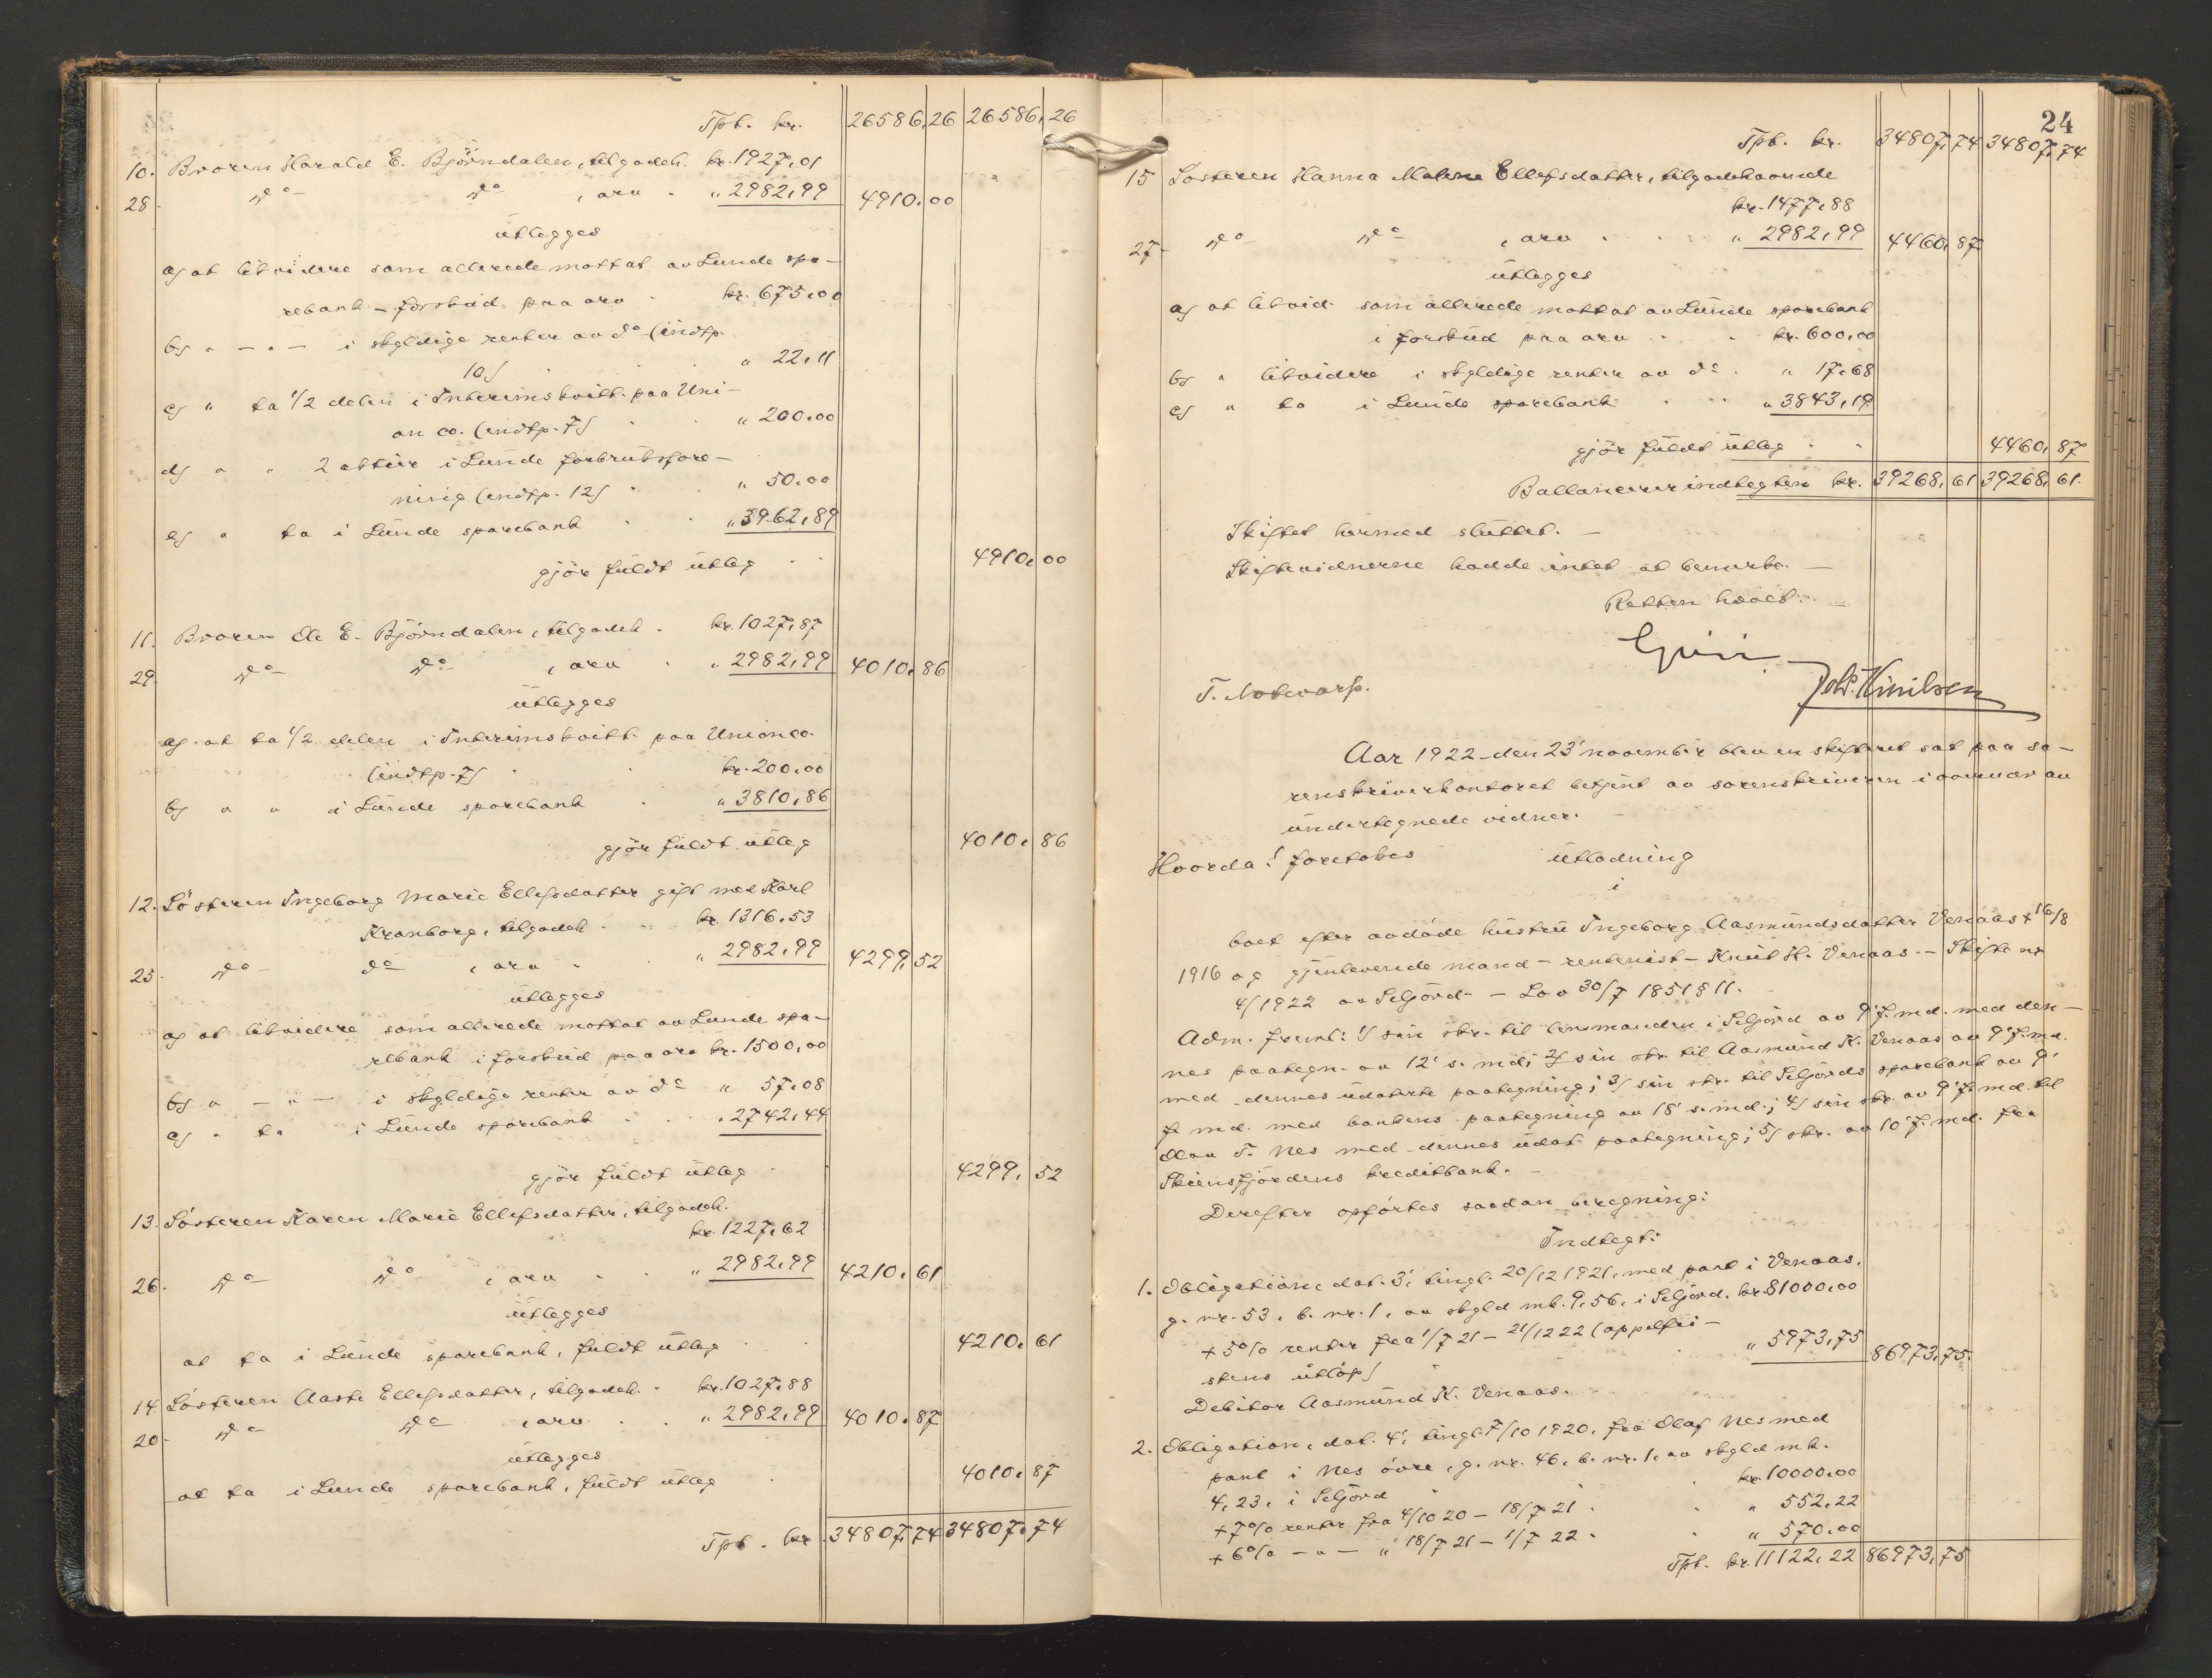 Tpt. kr. 26586,26 26586,26
10. Broren Harald E. Bjørndalen, tilgodeh. kr. 1927,01
28. do do , arv " 2982,99 4910,00
utlegges
a) at likvidere som allerede mottat av Lunde spa-
rebank - forskud paa arv kr. 675,00
b) " — " — i skyldige renter av do (indtp.
10) " 22,11
c) " ta 1/2 delen i Interimskvitt. paa Uni-
on co. (indtp. 7) " 200,00
d) " " 2 aktier i Lunde forbruksfore-
ning (indtp. 12) " 50,00
e) " ta i Lunde sparebank " 3962,89
gjør fuldt utlæg 4910,00
11. Broren Ole E. Bjørndalen, tilgodeh. kr. 1027,87
29. do do , arv " 2982,99 4010,86
utlegges
a) at ta 1/2 delen i Interimskvitt. paa Unionco.
(indtp. 7) kr. 200,00
b) " " i Lunde sparebank " 3810,86
gjør fuldt utlæg 4010,86
12. Søsteren Ingeborg Marie Ellefsdatter gift med Karl
Kranborg, tilgodeh. kr. 1316,53
25. do do , arv " 2982,99 4299,52
utlegges
a) at likvidere som allerede mottat av Lunde spa-
rebank i forskud paa arv kr. 1500,00
b) " — " — i skyldige renter av do " 57,08
c) " ta i Lunde sparebank " 2742,44
gjør fuldt utlæg 4299,52
13. Søsteren Karen Marie Ellefsdatter, tilgodeh.
kr. 1227,62
26. do do , arv " 2982,99 4210,61
utlegges
at ta i Lunde sparebank, fuldt utlæg 4210,61
14. Søsteren Aaste Ellefsdatter, tilgodeh. kr. 1027,88
20. do do , arv " 2982,99 4010,87
utlegges
at ta i Lunde sparebank, fuldt utlæg 4010,87
Tpt. kr. 34807,74 34807,74
24
Tpt. kr. 34807,74 34807,74
15 Søsteren Hanna Malene Ellefsdatter, tilgodehavende
kr. 1477,88
27. do do , arv " 2982,99 4460,87
utlegges
a) at likvid. som allerede mottat av Lunde sparebank
i forskud paa arv kr. 600,00
b) " likvidere i skyldige renter av do " 17,68
c) " ta i Lunde sparebank " 3843,19
gjør fuldt utlæg 4460,87
Ballancerer indtegten kr. 39268,61 39268,61.
Skiftet hermed sluttet. —
Skiftevidnerne hadde intet at bemerke. —
Retten hævet.
T. Notevarp.
Aar 1922 den 23' november blev en skifteret sat paa so-
renskriverkontoret betjent av sorenskriveren i overvær av
undertegnede vidner.
Hvorda: foretokes utlodning
i
boet efter avdøde hustru Ingeborg Aasmundsdatter Venaas + 16/8
1916 og gjenlevende mand - rentenist - Knut H. Venaas. - Skifte nr
4/1922 av Seljord. - Lov 30/7 1851 § 11.
Adm. freml: 1) sin skr. til lensmanden i Seljord av 9' f. md. med den-
nes paategn. av 12' s. md; 2) sin skr. til Aasmund K. Venaas av 9' f. md.
med dennes udaterte paategning; 3) sin skr. til Seljords sparebank av 9'
f. md. med bankens paategning av 18' s. md.; 4) sin skr. av 9' f. md. til
Olav T. Nes med dennes udat. paategning; 5) skr. av 10' f. md. fra
Skiensfjordens kreditbank. —
Derefter opførtes saadan beregning:
Indtegt:
1. Obligation, dat. 3', tingl. 20/12 1921, med pant i Venaas,
g. nr. 53, b. nr. 1, av skyld mk. 9,56, i Seljord. kr. 81000,00
+ 5% renter fra 1/7 21 - 21/12 22 (appelfri-
stens utløp) " 5973,75 86973,75.
Debitor Aasmund K. Venaas.
2. Obligation, dat. 4', tingl. 7/10 1920, fra Olaf Nes med
pant i Nes øvre, g. nr. 46, b. nr. 1, av skyld mk.
4,23, i Seljord kr. 10000,00
+ 7% renter fra 4/10 20 - 18/7 21 " 552,22
+ 6% — " — " 18/7 21 - 1/7 22 " 570,00
Tpt. kr. 11122,22 86973,75